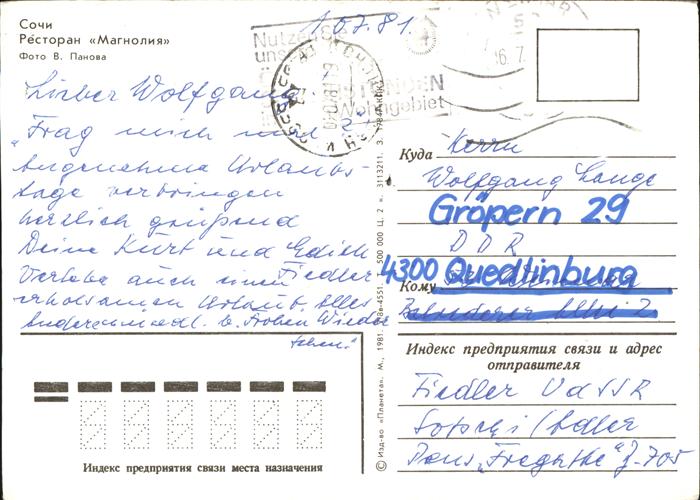 Сочи
Ресторан «Магнолия»
Фото В. Панова
1.07.81.
Nutzen Sie
Wohngebiet
Lieber Wolfgang!
"Frag mich mal
Angenehme Urlaubs-
tage verbringen
herzlich grüßend
Deine Kurt und Edith
Fiedler
Verlebe auch einen
erholsamen Urlaub. Alles
Frohen Wieder
sehen!
Куда Herrn
Wolfgang Lange
Gröpern 29
DDR
4300 Quedlinburg
Кому
Индекс предприятия связи и адрес
отправителя
Fiedler UdSSR
Sotschi/Adler
Pens. „Fregatte" Z-705
Индекс предприятия связи места назначения
© Изд-во «Планета». М., 1981.
500 000 Ц. 2 к. 3113211. З.